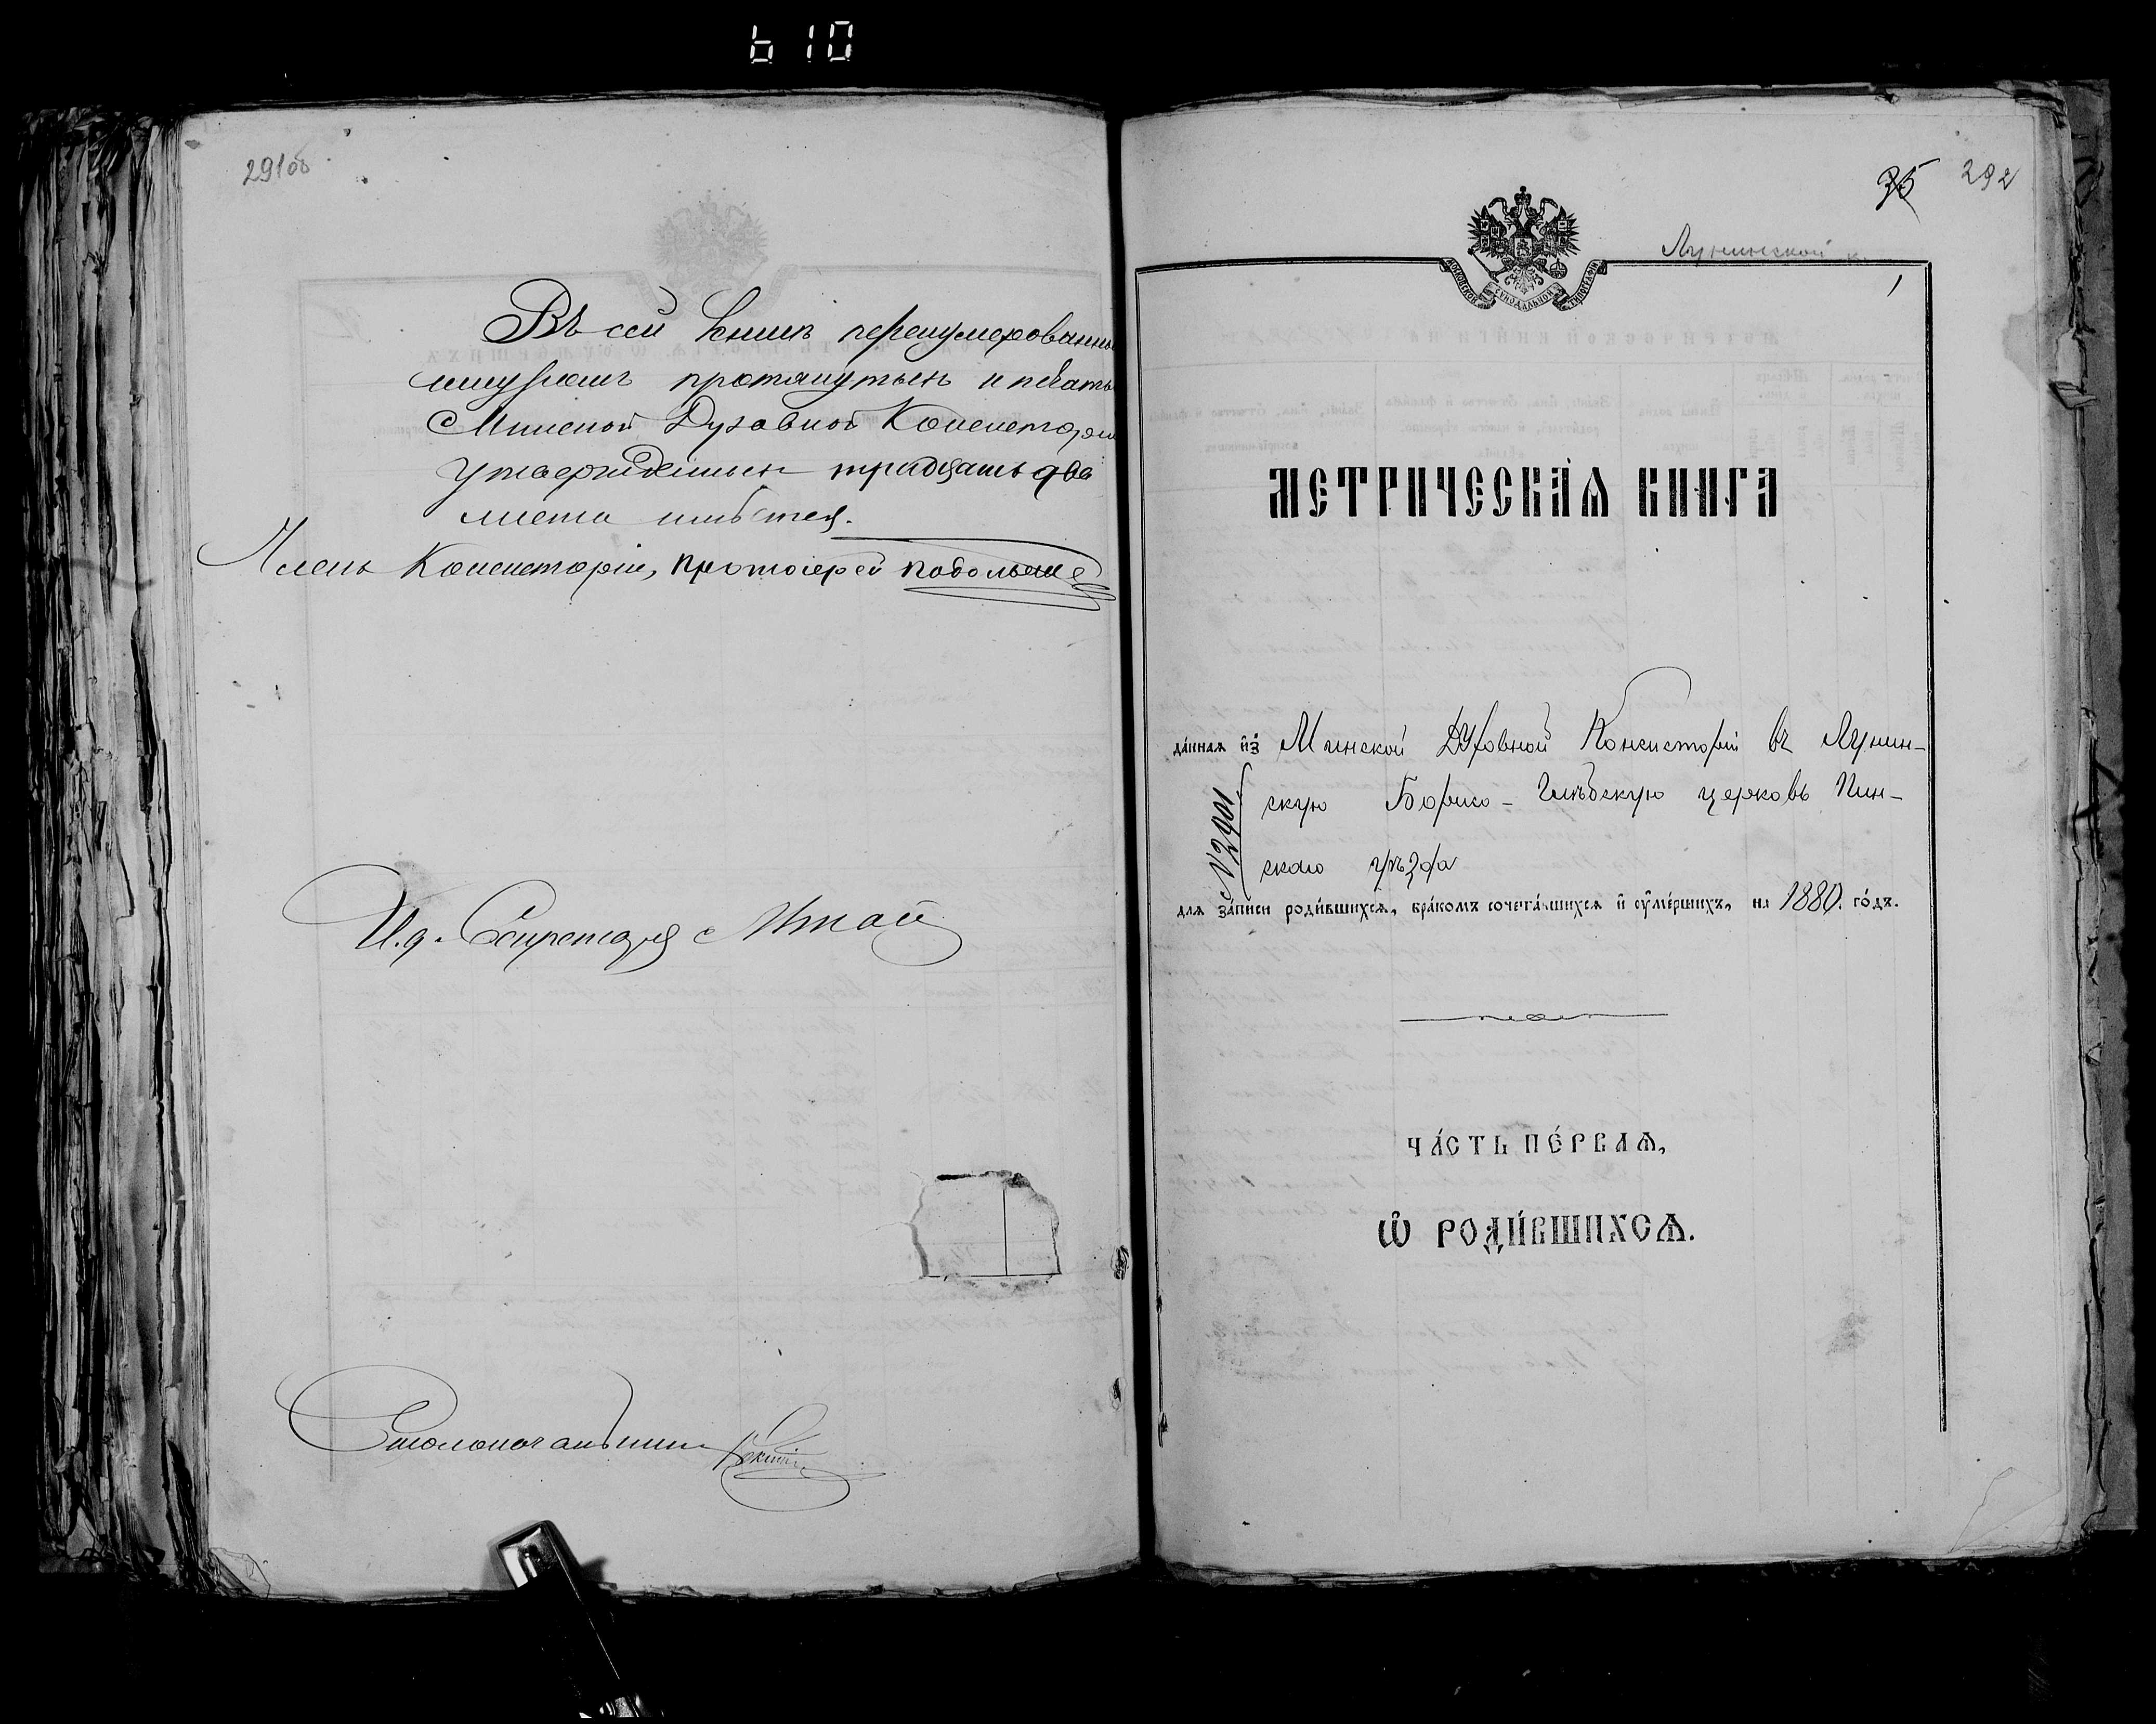 610
291об
Въ сей книгѣ перенумерованныхъ
шнуромъ протянутыхъ и печатью
Минской Духовной Консисторіи
утвержденныхъ тридцать два
листа имѣется.
Членъ Консисторіи, Протоіерей
И. д. Секретаря
Столоначальникъ
35 292
Лунинской
1
МОСКОВСКОЙ СѴНОДАЛЬНОЙ ТИПОГРАФІИ
МЕТРИЧЕСКАѦ КНИГА
да́ннаѧ и҆з̾ Минской Духовной Консисторіи въ Лунин-
скую Борисо-Глѣбскую церковь Пин-
скаго уѣзда
№ 2901
длѧ за́писи роди́вшихсѧ, бра́комъ сочета́вшихсѧ и҆ ᲂу҆ме́ршихъ, на 1880. го́дъ.
ЧА́СТЬ ПЕ́РВАѦ,
Ѡ҆ РОДИ́ВШИХСѦ.